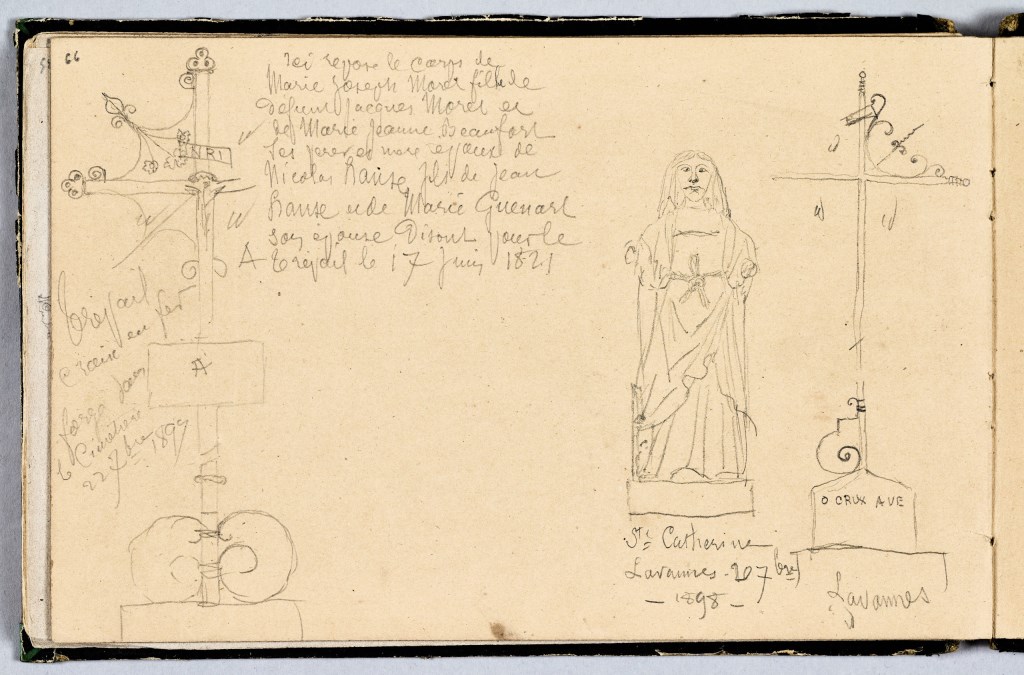 66
Ici repose le corps de
Marie Joseph Morel fille de
défunt Jacques Morel et
de Marie Jeanne Beaufort
ses pere et mere epouse de
Nicolas Hanse fils de Jean
Hanse et de Marie Guenart
son epouse Disont pour le
A Trépail le 17 Juin 1821
INRI
Trépail
Croix en fer
forgé dans
le Cimetière
22 7bre 1897
A
Ste Catherine
Lavannes - 20 7bre
- 1898 -
O CRUX AVE
Lavannes